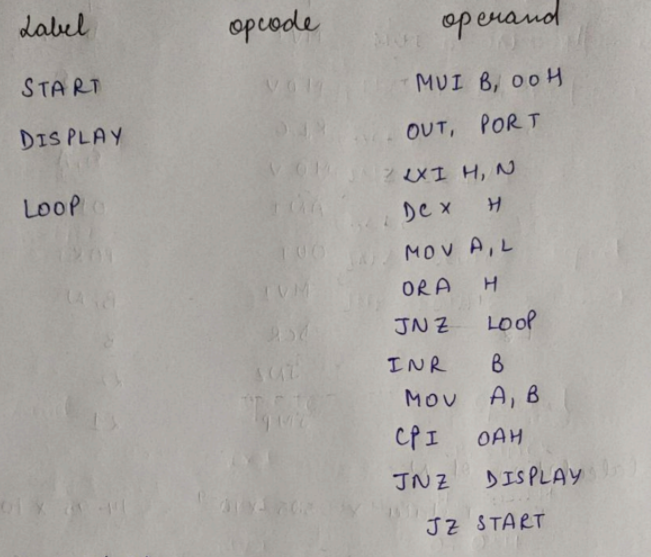 Label opcode operand
START MUI B, 00H
DISPLAY OUT, PORT
LXI H, N
LOOP DCX H
MOV A, L
ORA H
JNZ LOOP
INR B
MOV A, B
CPI 0AH
JNZ DISPLAY
JZ START